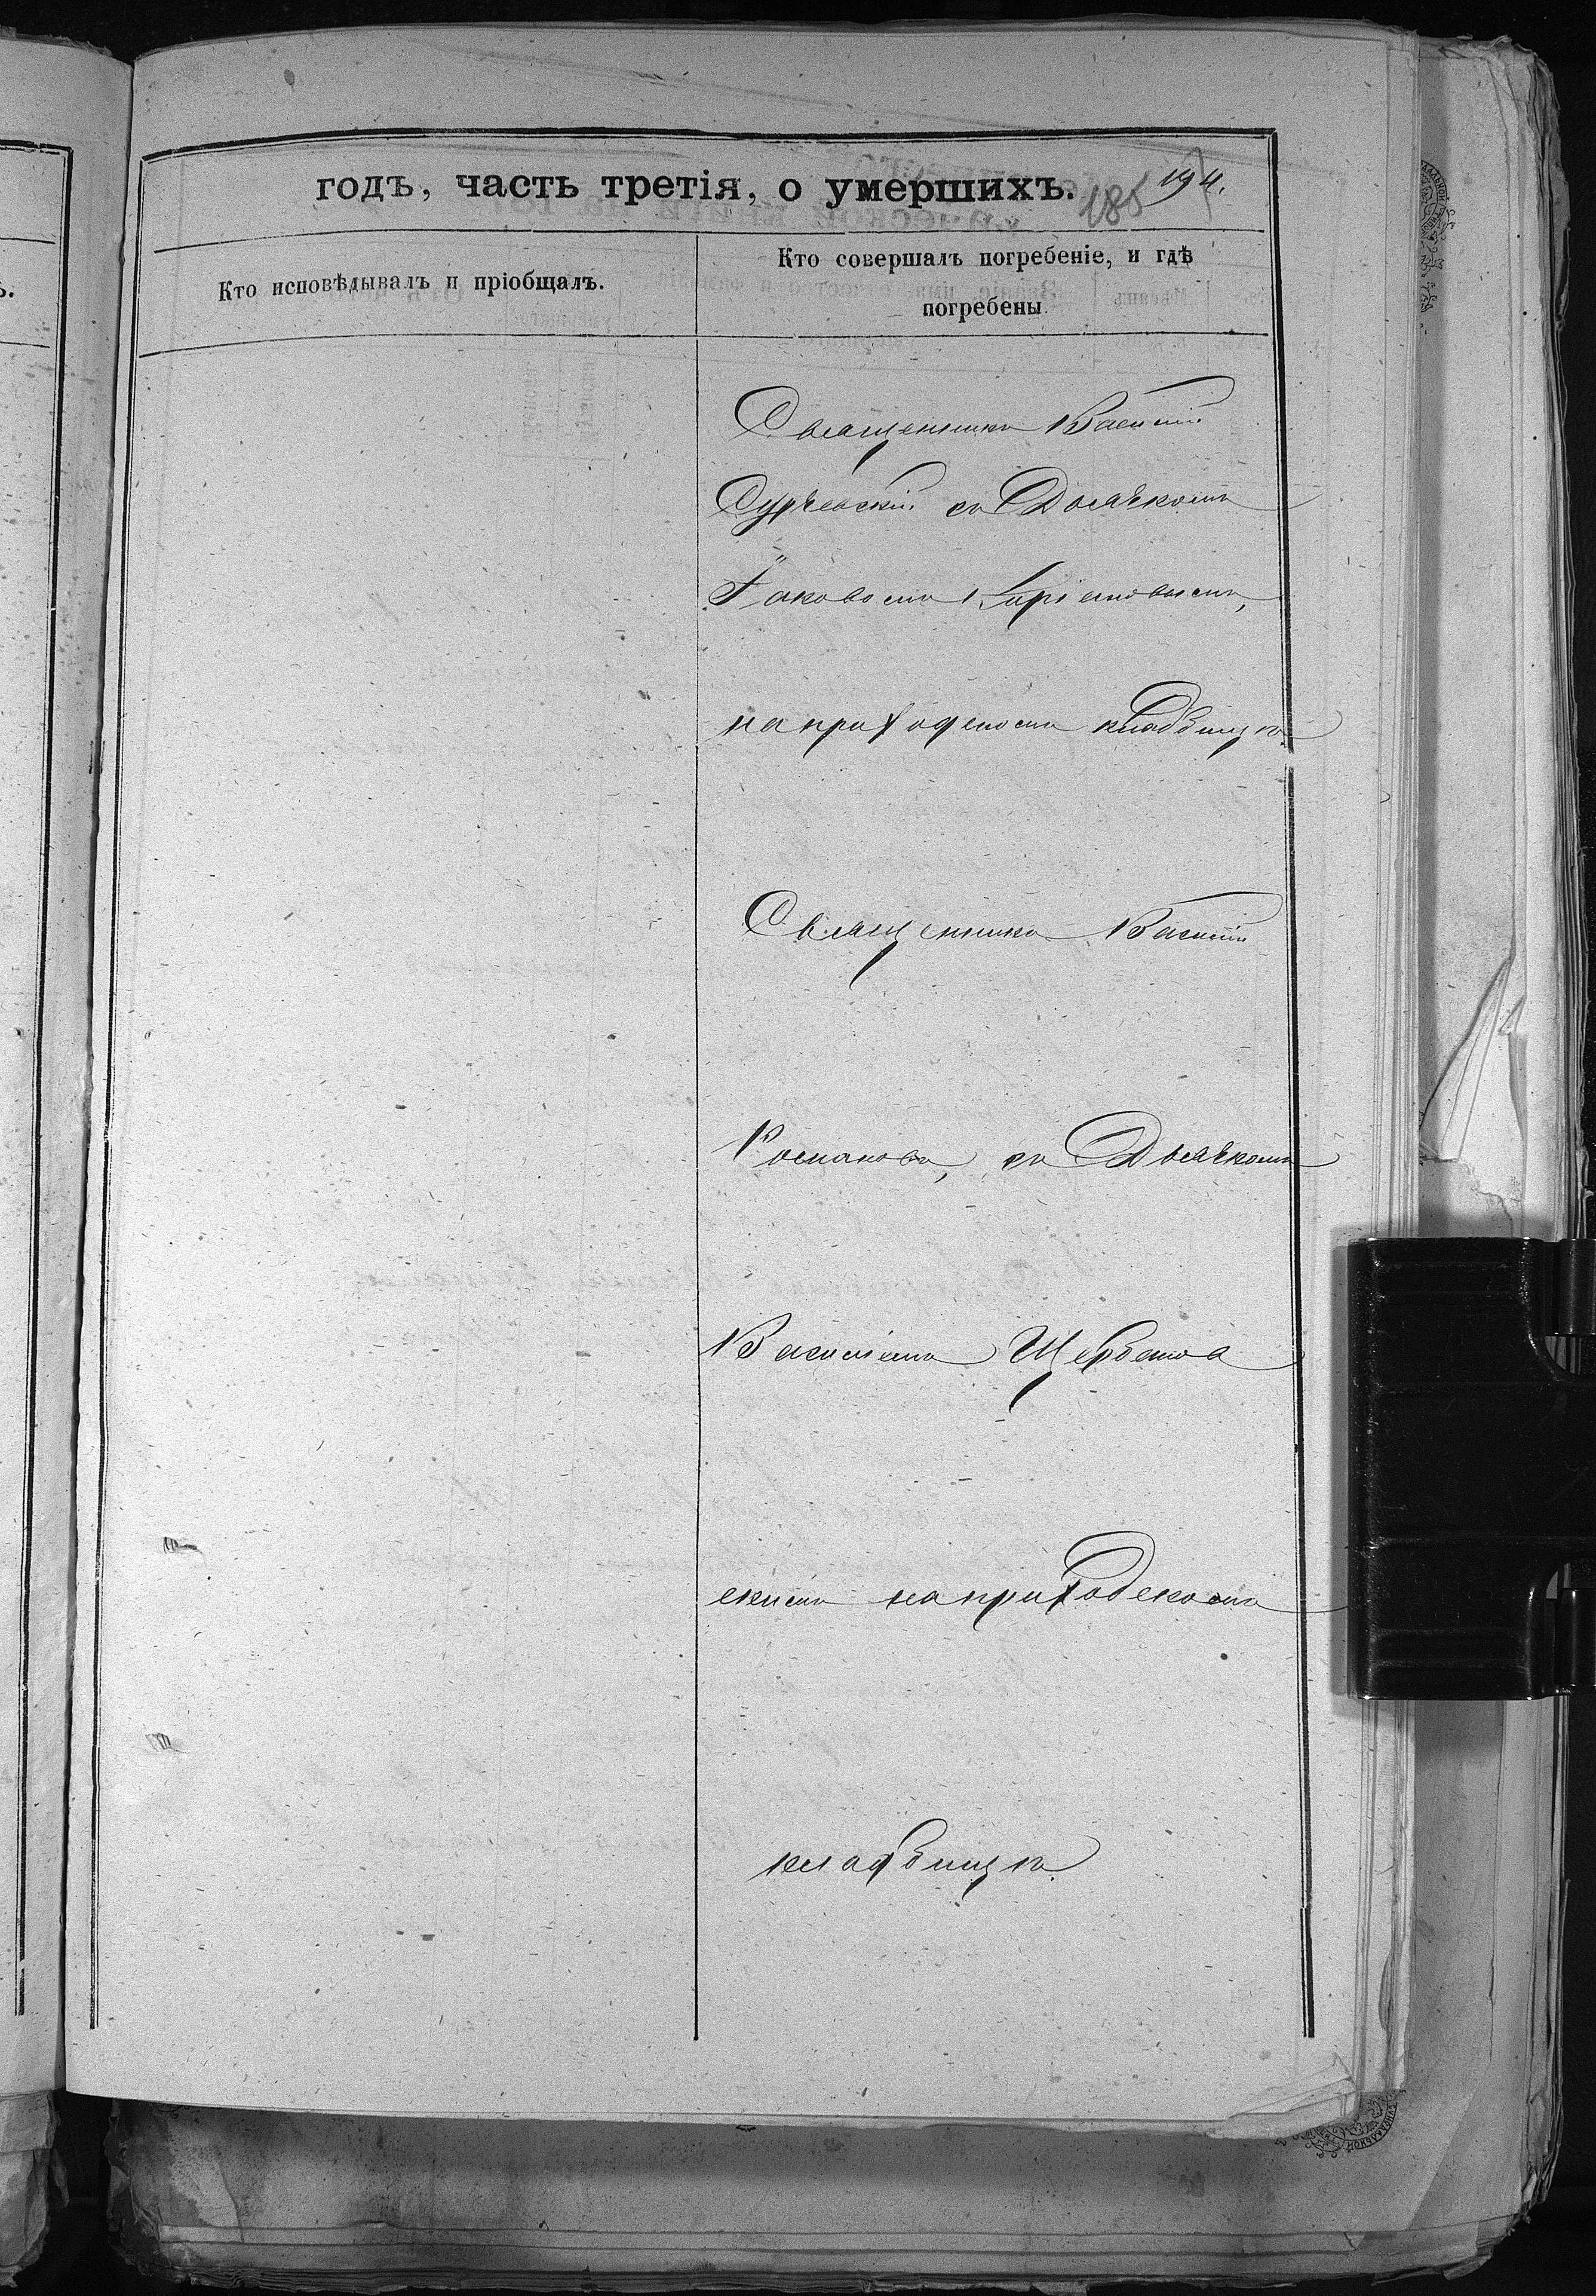 годъ, часть третія, о умершихъ.
185 194.
Кто исповѣдывалъ и пріобщалъ.
Кто совершалъ погребеніе, и гдѣ
погребены
Священникъ Василій
съ Дьячкомъ
Іаковомъ
на приходскомъ кладбищѣ.
Священникъ Василій
Романовъ, съ Дьячкомъ
Василіемъ Щербанов
скимъ на приходскомъ
кладбищѣ.